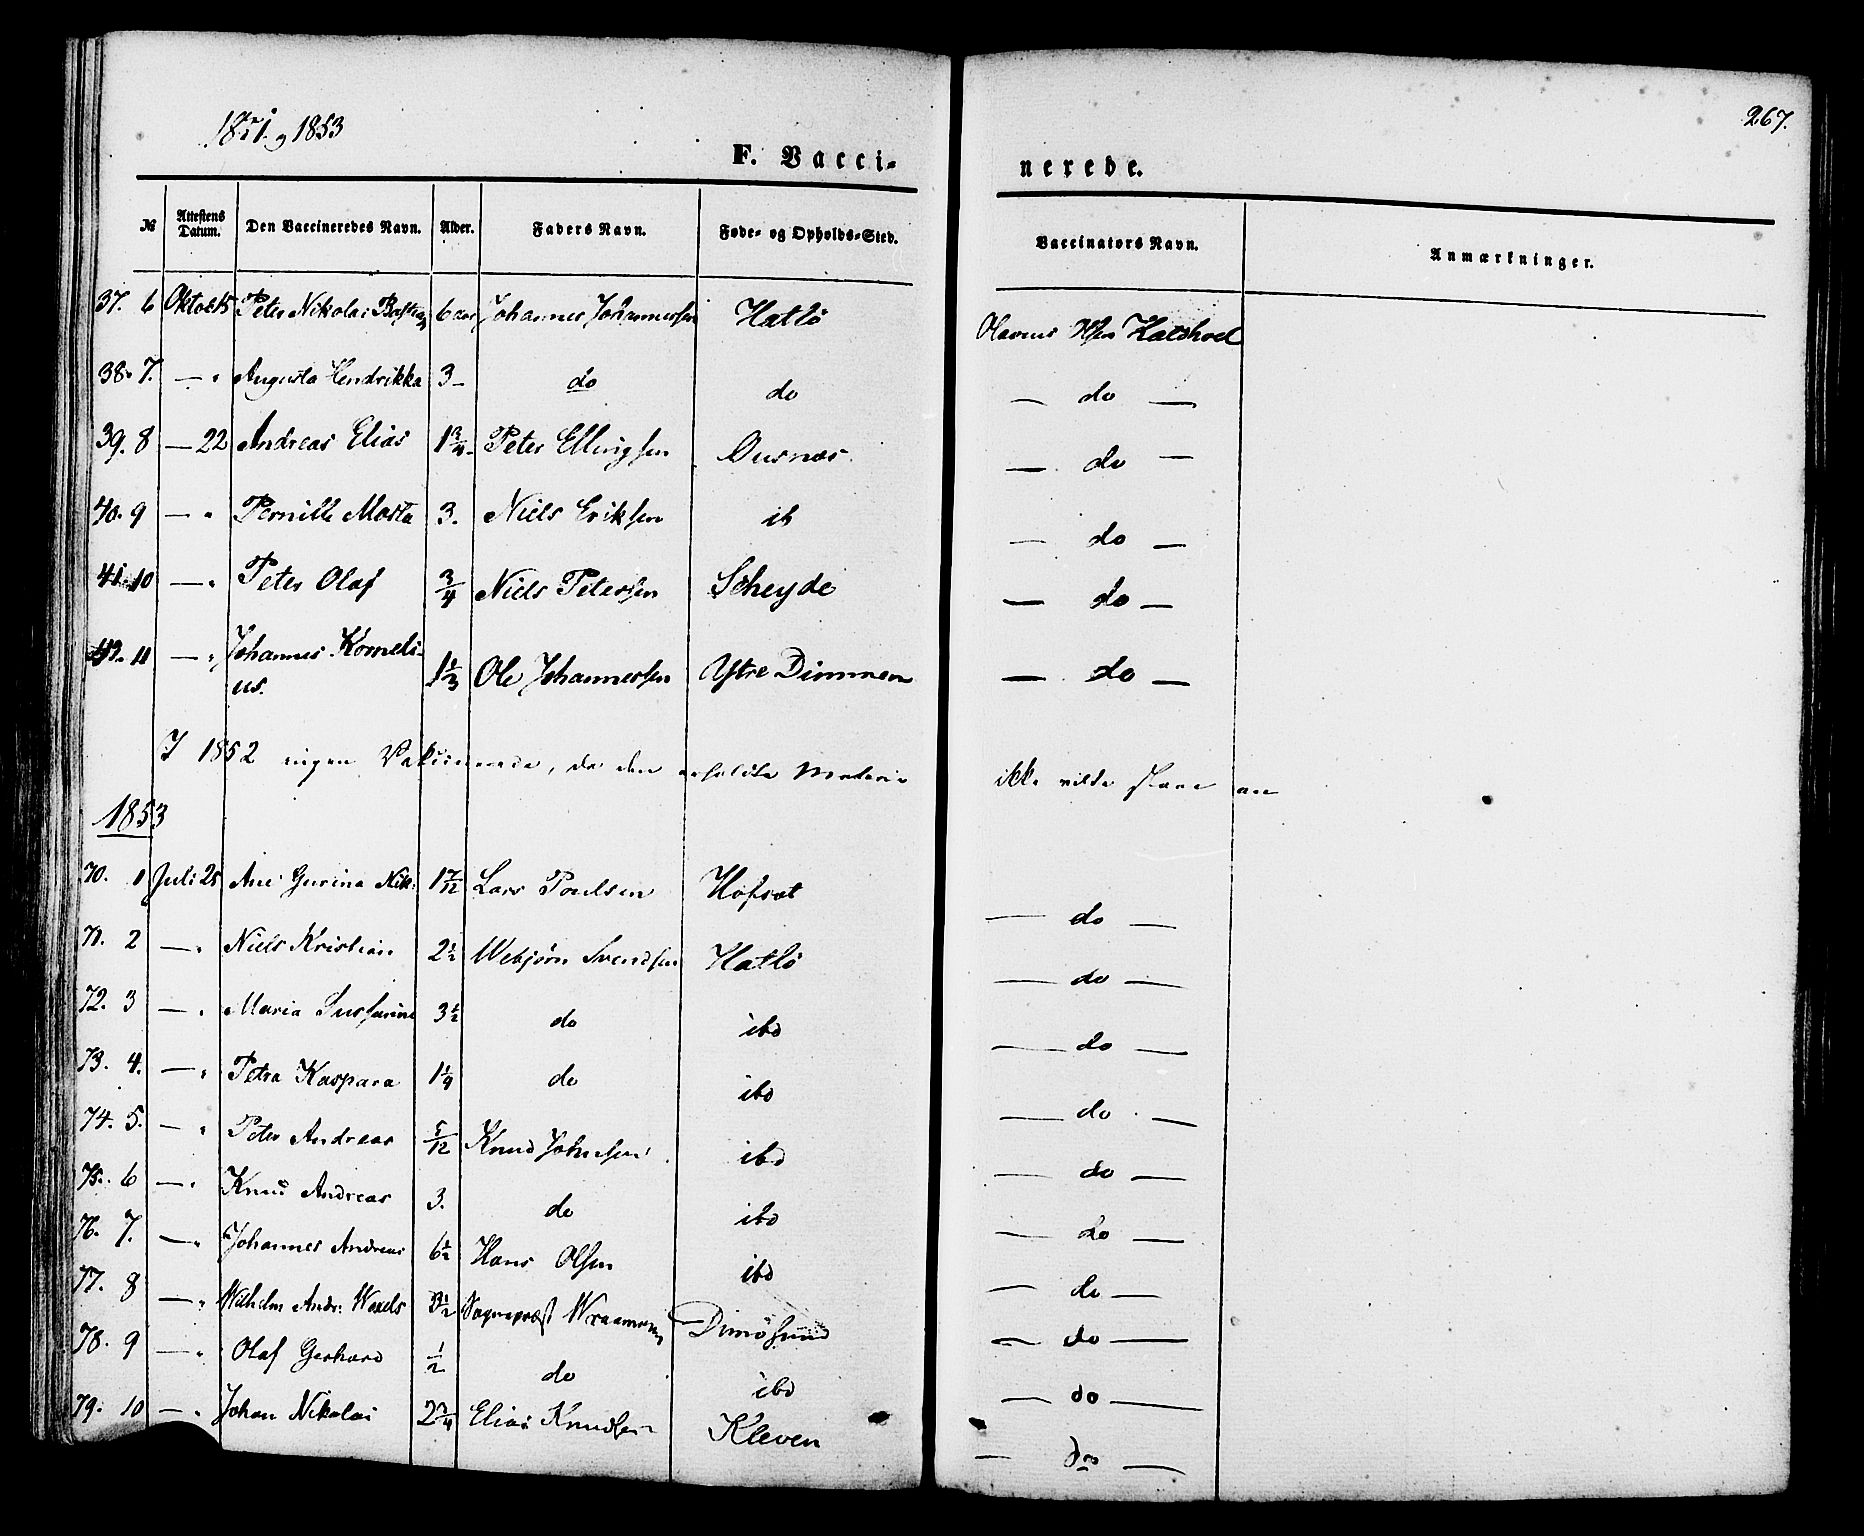 1851 og 1853
267.
F. Vacci-
nerede.
№ Attestens Datum. Den Vaccineredes Navn. Alder. Faders Navn. Føde- og Opholds-Sted. Vaccinators Navn. Anmærkninger.
37. 6 Oktob 15 Peter Nikolai Bastian 6 aar Johannes Johannessen Hatlö Olavus Hatshoel
38. 7. — " Augusta Hendrikka 3 — do do — do —
39. 8 — 22 Andreas Elias 1 3/4 Peter Ellingsen Ousnæs. — do —
40. 9 — " Pernille Marta 3. Niels Eriksen ib — do —
41. 10 — " Peter Olaf 3/4 Niels Petersen Scheyde — do —
42. 11 — " Johannes Korneli-
us. 1 2/3 Ole Johannessen Ystre Dimmen — do —
I 1852 ingen Vakcinerede, da den erholdte Materie ikke vilde slaae an
1853
70. 1 Juli 25 Ane Gurina Nik: 1 7/12 Lars Poulsen Hofsæt — do —
71. 2 — " Niels Kristian 2 1/2 Webjørn Svendsen Hatlö — do —
72. 3 — " Maria 3 1/2 do ibd — do —
73. 4. — " Petra Kaspara 1 1/4 do ibd — do —
74. 5. — " Peter Andreas 5/12 Knud Johnsen ibd — do —
75. 6 — " Knud Andreas 3. do ibd — do —
76. 7. — " Johannes Andreas 6 1/2 Hans Olsen ibd — do —
77. 8 — " Wilhelm Andr: Wexels 3 1/2 Sognepræst Dimösund — do —
78. 9 — " Olaf Gerhard 1/2 do ibd — do —
79. 10 — " Johan Nikolai 2 3/4 Elias Knudsen Kleven — do —